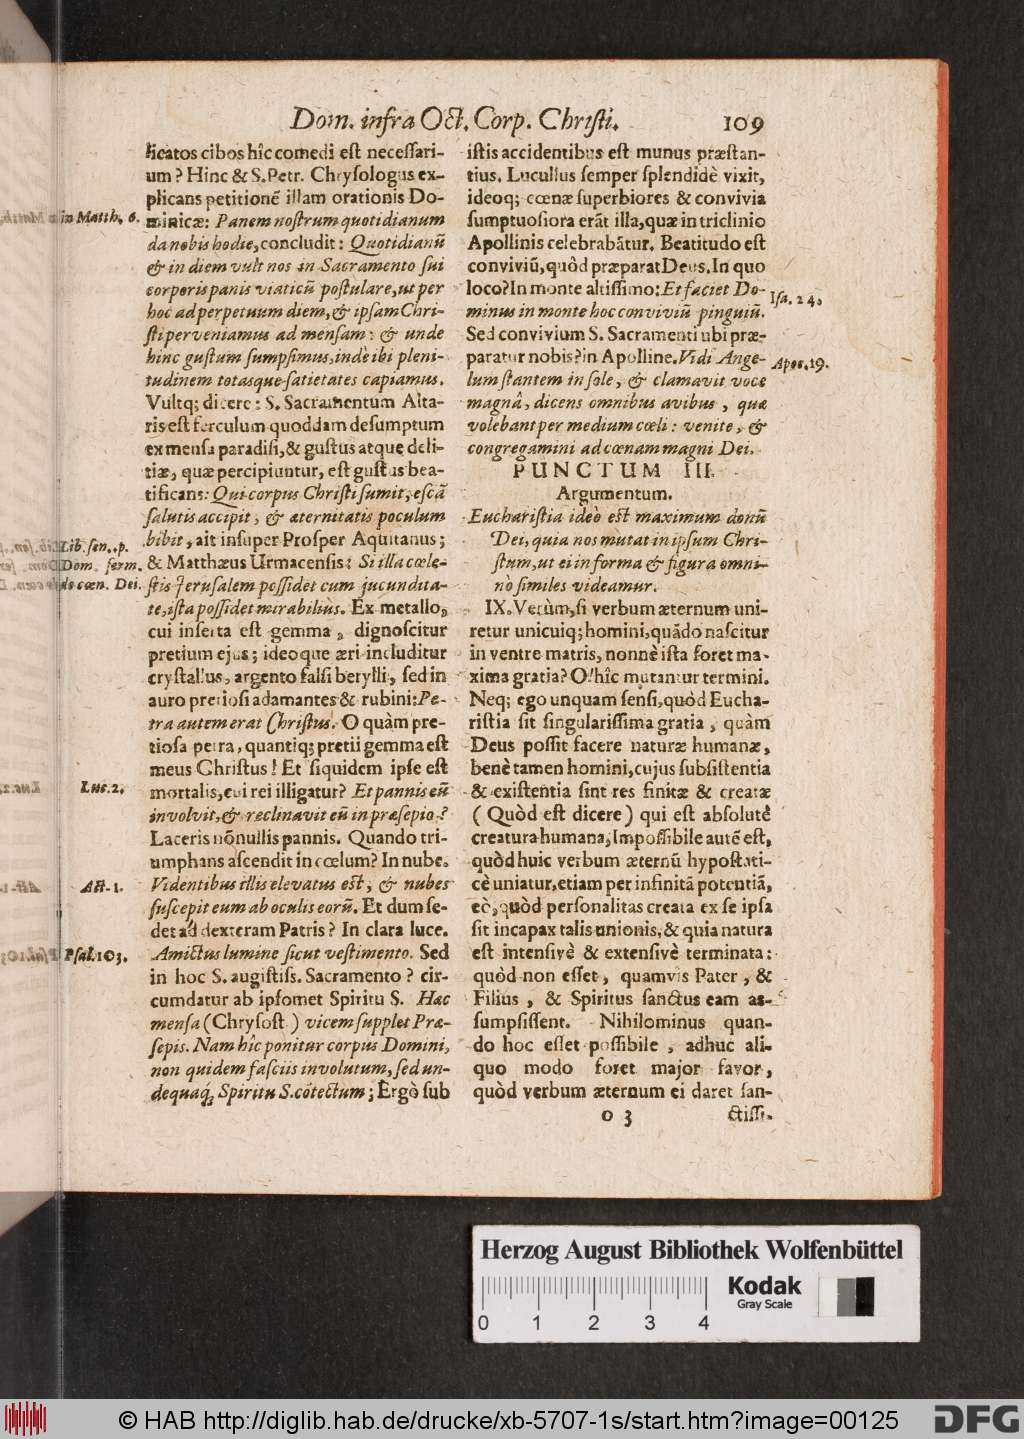 Dom. infra Oct. Corp. Christi.
109
ficatos cibos hîc comedi est necessari-
um? Hinc & S. Petr. Chrysologus ex-
plicans petitionẽ illam orationis Do-
minicæ: Panem nostrum quotidianum
da nobis hodie, concludit: Quotidianũ
& in diem vult nos in Sacramento sui
corporis panis viaticũ postulare, ut per
hoc ad perpetuum diem, & ipsam Chri-
sti perveniamus ad mensam: & unde
hinc gustum sumpsimus, indè ibi pleni-
tudinem totasque satietates capiamus.
Vultq; dicere: S. Sacramentum Alta-
ris est ferculum quoddam desumptum
ex mensa paradisi, & gustus atque deli-
tiæ, quæ percipiuntur, est gustus bea-
tificans: Qui corpus Christi sumit, escã
salutis accipit, & æternitatis poculum
bibit, ait insuper Prosper Aquitanus;
& Matthæus Urmacensis: Si illa cœle-
stis Jerusalem possidet cum jucundita-
te, ista possidet mirabiliùs. Ex metallo,
cui inserta est gemma, dignoscitur
pretium ejus; ideoque æri includitur
crystallus, argento falsi berylli, sed in
auro pretiosi adamantes & rubini: Pe-
tra autem erat Christus. O quàm pre-
tiosa petra, quantiq; pretii gemma est
meus Christus! Et siquidem ipse est
mortalis, cui rei illigatur? Et pannis eũ
involvit, & reclinavit eũ in præsepio?
Laceris nõnullis pannis. Quando tri-
umphans ascendit in cœlum? In nube.
Videntibus illis elevatus est, & nubes
suscepit eum ab oculis eorũ. Et dum se-
det ad dexteram Patris? In clara luce.
Amictus lumine sicut vestimento. Sed
in hoc S. augistiss. Sacramento? cir-
cumdatur ab ipsomet Spiritu S. Hæc
mensa (Chrysost.) vicem supplet Præ-
sepis. Nam hîc ponitur corpus Domini,
non quidem fasciis involutum, sed un-
dequaq; Spiritu S. cõtectum; Ergò sub
in Matth. 6.
Lib. sen. p.
Dom. serm.
de cœn. Dei.
Luc. 2.
Act. 1.
Psal. 103.
istis accidentibus est munus præstan-
tius. Lucullus semper splendidè vixit,
ideoq; cœnæ superbiores & convivia
sumptuosiora erãt illa, quæ in triclinio
Apollinis celebrabãtur. Beatitudo est
conviviũ, quòd præparat Deus. In quo
loco? In monte altissimo: Et faciet Do-
minus in monte hoc conviviũ pinguiũ.
Sed convivium S. Sacramenti ubi præ-
paratur nobis? in Apolline. Vidi Ange-
lum stantem in sole, & clamavit voce
magnâ, dicens omnibus avibus, quæ
volebant per medium cœli: venite, &
congregamini ad cœnam magni Dei.
Isa. 24.
Apoc. 19.
PUNCTUM III.
Argumentum.
Eucharistia ideò est maximum donũ
Dei, quia nos mutat in ipsum Chri-
stum, ut ei in forma & figura omni-
nò similes videamur.
IX. Verùm, si verbum æternum uni-
retur unicuiq; homini, quãdo nascitur
in ventre matris, nonnè ista foret ma-
xima gratia? O! hîc mutantur termini.
Neq; ego unquam sensi, quòd Eucha-
ristia sit singularissima gratia, quàm
Deus possit facere naturæ humanæ,
benè tamen homini, cujus subsistentia
& existentia sint res finitæ & creatæ
(Quòd est dicere) qui est absolutè
creatura humana; Impossibile autẽ est,
quòd huic verbum æternũ hypostati-
cè uniatur, etiam per infinitã potentiã,
eò, quòd personalitas creata ex se ipsa
sit incapax talis unionis, & quia natura
est intensivè & extensivè terminata:
quòd non esset, quamvis Pater, &
Filius, & Spiritus sanctus eam as-
sumpsissent. Nihilominus quan-
do hoc esset possibile, adhuc ali-
quo modo foret major favor,
quòd verbum æternum ei daret san-
O 3
ctissi-
Herzog August Bibliothek Wolfenbüttel
Kodak
Gray Scale
0 1 2 3 4
© HAB http://diglib.hab.de/drucke/xb-5707-1s/start.htm?image=00125
DFG